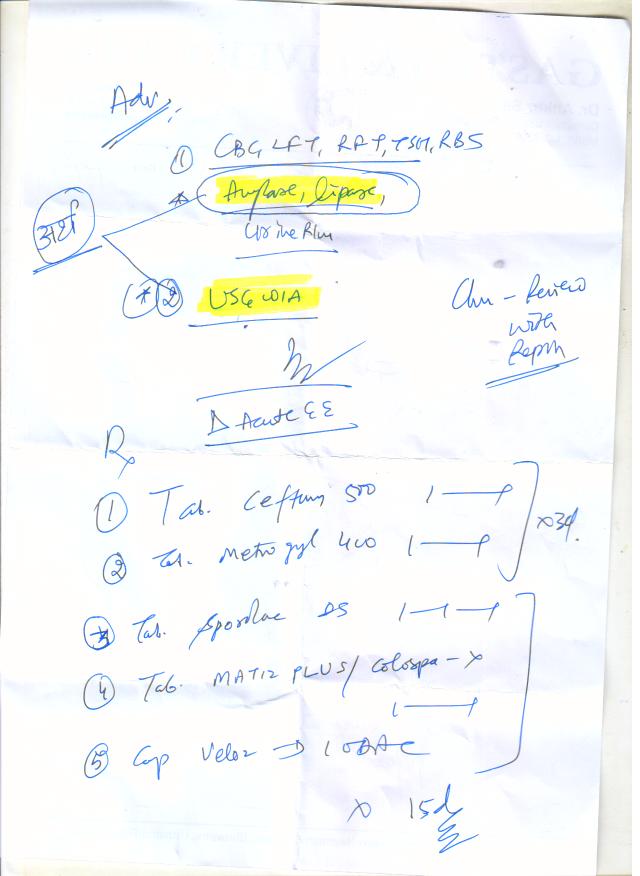 Adv:
① CBC, LFT, RFT, TSH, RBS
* Amylase, lipase,
अभी
Urine R/m
* ② USG W/A
Review
with
Report
Δ Acute GE
Rx
① Tab. Ceftum 500 1—1
② Tab. Metrogyl 400 1—1
x3d.
③ Tab. Sporolac DS 1—1—1
④ Tab. MATIZ PLUS/ Colospa-X
1—1
⑤ Cap Veloz D 1 OD AC
x 15d